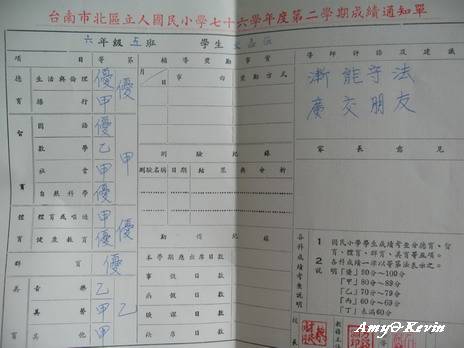 台南市北區立人國民小學七十六學年度第二學期成績通知單
六年級五班 學生
項目 等第 輔導獎勵事實 導師評語及建議
月/日 事由 獎勵方式
德育 生活與倫理 優 優
操行 甲
漸能守法
廣交朋友
智育 國語 優 甲
數學 乙
社會 甲
自然科學 優
測驗紀錄
測驗名稱 日期 結果與分析
家長意見
體育 體育或唱遊 甲 優
健康教育 優
群育 優
勤惰紀錄
本學期應出席日數
事假日數
病假日數
曠課日數
缺席日數
美育 音樂 乙 乙
美術 甲
其他 甲
各科成績考查說明
1 國民小學學生成績考查分德育、智育、體育、群育、美育等五項。
2 各科成績一律以等第法表示之。
說明
「優」90分～100分
「甲」80分～89分
「乙」70分～79分
「丙」60分～69分
「丁」未滿60分
校長
Amy&Kevin